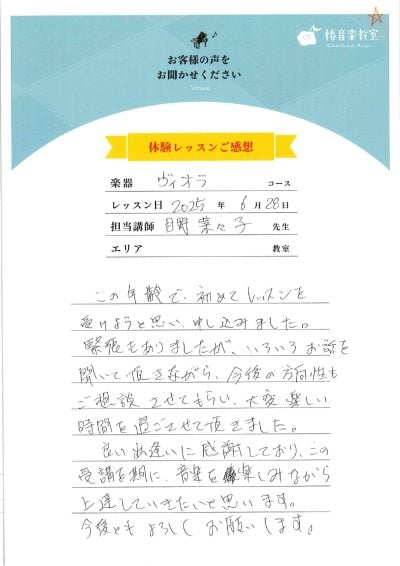 椿音楽教室
お客様の声を
お聞かせください
Voice
体験レッスンご感想
楽器 ヴィオラ コース
レッスン日 2025 年 6 月 28 日
担当講師 日野菜々子 先生
エリア 教室
この年齢で、初めてレッスンを
受けようと思い、申し込みました。
緊張もありましたが、いろいろお話を
聞いて頂きながら、今後の方向性も
ご相談させてもらい、大変楽しい
時間を過ごさせて頂きました。
良い出逢いに感謝しており、この
受講を期に、音楽を楽しみながら
上達していきたいと思います。
今後ともよろしくお願いします。